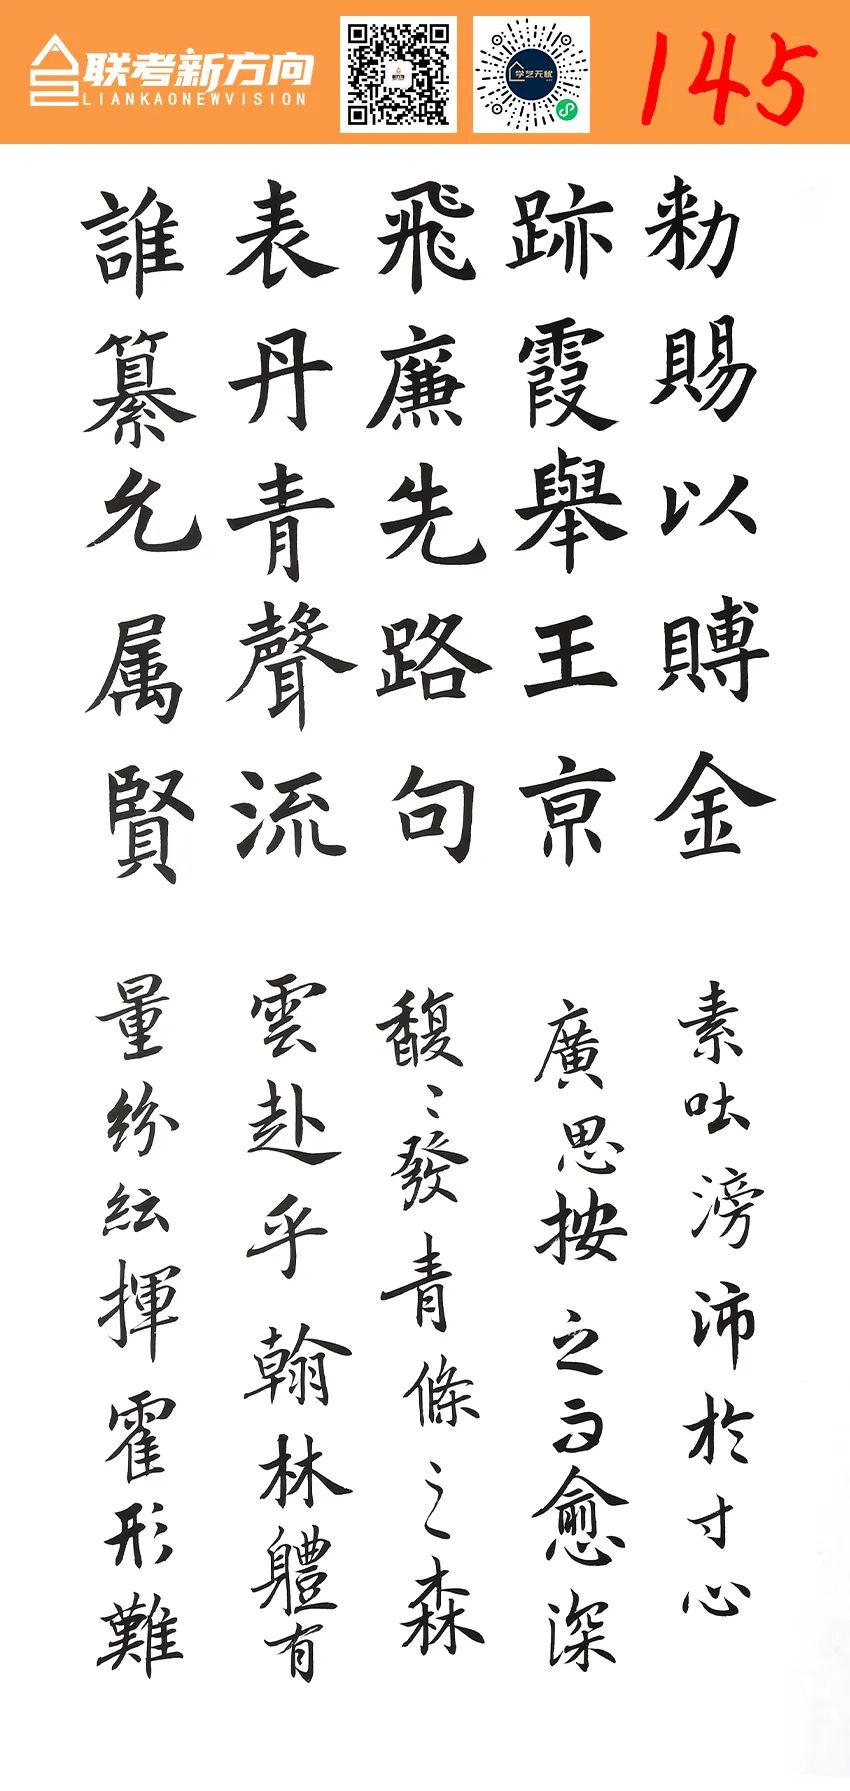 联考新方向
LIANKAONEWVISION
学艺无忧
145
勑賜以賻金
跡霞舉王亰
飛廉先路句
表丹青聲流
誰纂允属賢
素吐滂沛於寸心
廣思按之而愈深
馥〻發青條之森
雲赴乎翰林體有
量紛紜揮霍形難